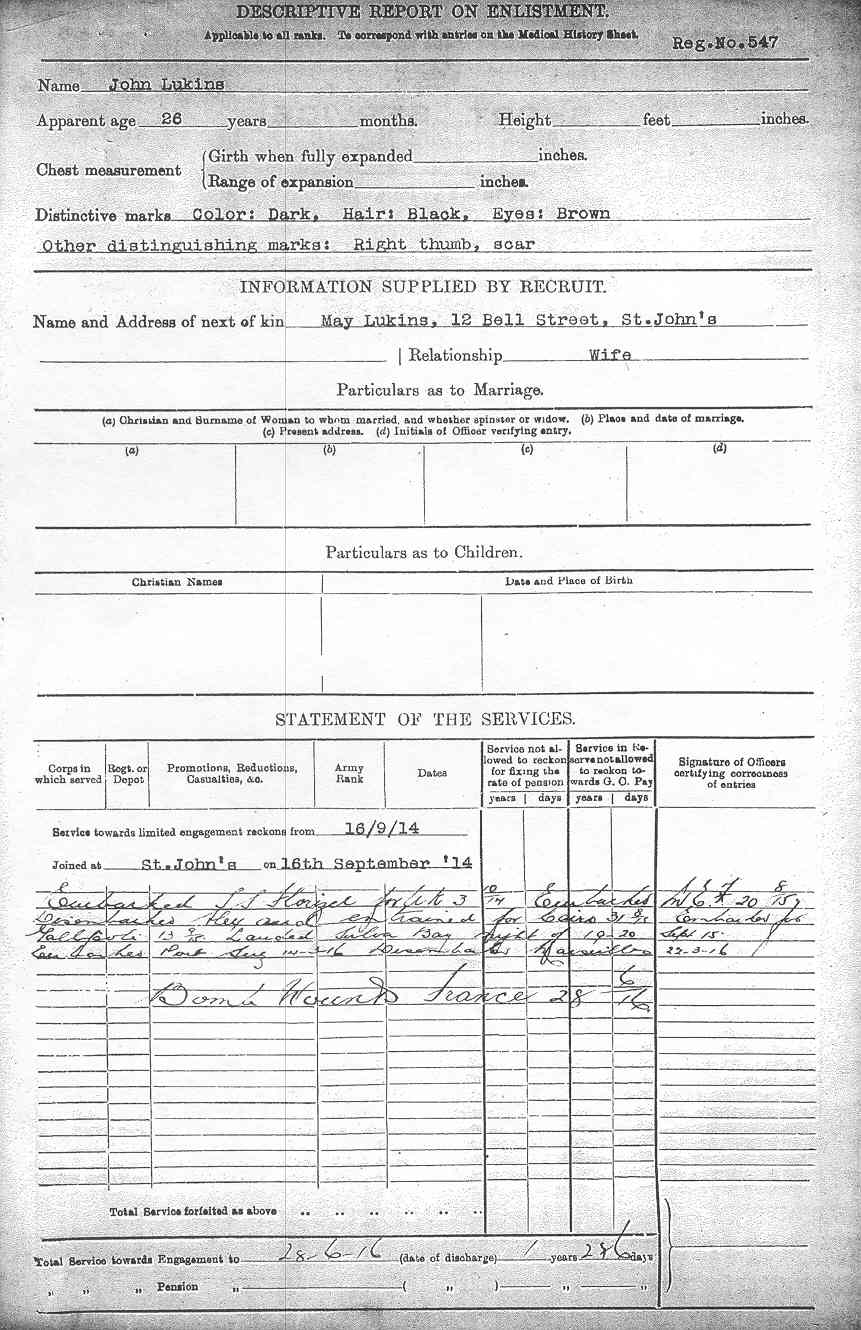 DESCRIPTIVE REPORT ON ENLISTMENT.
Applicable to all ranks. To correspond with entries on the Medical History Sheet.
Reg.No.547
Name John Lukins
Apparent age 26 years months. Height feet inches.
Chest measurement
Girth when fully expanded inches.
Range of expansion inches.
Distinctive marks Color: Dark, Hair: Black, Eyes: Brown
Other distinguishing marks: Right thumb, scar
INFORMATION SUPPLIED BY RECRUIT.
Name and Address of next of kin May Lukins, 12 Bell Street, St.John's
Relationship Wife
Particulars as to Marriage.
(a) Christian and Surname of Woman to whom married, and whether spinster or widow. (b) Place and date of marriage.
(c) Present address. (d) Initials of Officer verifying entry.
(a) (b) (c) (d)
Particulars as to Children.
Christian Names Date and Place of Birth
STATEMENT OF THE SERVICES.
Corps in which served
Regt. or Depot
Promotions, Reductions, Casualties, &c.
Army Rank
Dates
Service not allowed to reckon for fixing the rate of pension
Service in Reserve not allowed to reckon towards G. C. Pay
Signature of Officers certifying correctness of entries
years days years days
Service towards limited engagement reckons from 16/9/14
Joined at St.John's on 16th September '14
Embarked S S Florizel for UK 3 10/14 Embarked M E F 20 8 15
Disembarked Alex and entrained for Cairo 31 8/15 Embarked for
Gallipoli 13 9/15 Landed Suvla Bay night of 19-20 Sept 15.
Embarked Port Suez 14-3-16 Disembarked Marseilles 22-3-16
Bomb Wounds France 28 6/16
Total Service forfeited as above .. .. .. .. .. ..
Total Service towards Engagement to 28-6-16 (date of discharge) 1 years 286 days
" " " Pension " ( " ) " "